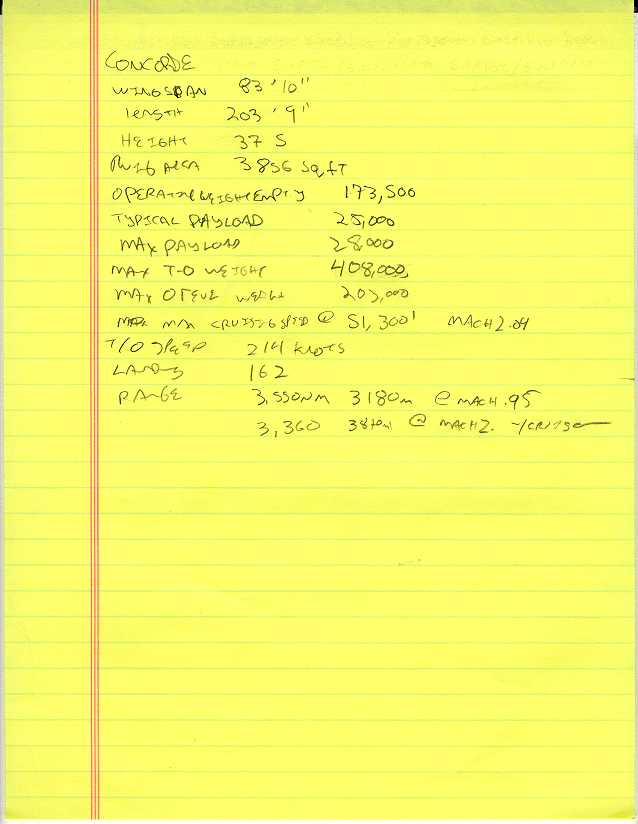 CONCORDE
WINGSPAN 83'10"
LENGTH 203'9"
HEIGHT 37 5
WING AREA 3856 Sq,FT
OPERATING WEIGHT EMPTY 173,500
TYPICAL PAYLOAD 25,000
MAX PAYLOAD 28,000
MAX T-O WEIGHT 408,000,
MAX WEIGHT 203,000
MAX CRUISING SPEED @ 51,300' MACH 2.04
T/O SPEED 214 KNOTS
LANDING 162
RANGE 3,550NM @ MACH .95
3,360 @ MACH 2. CRUISE